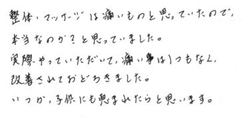 整体・マッサージは痛いものと思っていたので、
本当なのか？と思っていました。
実際、やっていただいて、痛い事は1つもなく、
改善されておどろきました。
いつか、子供にも恵まれたらと思います。